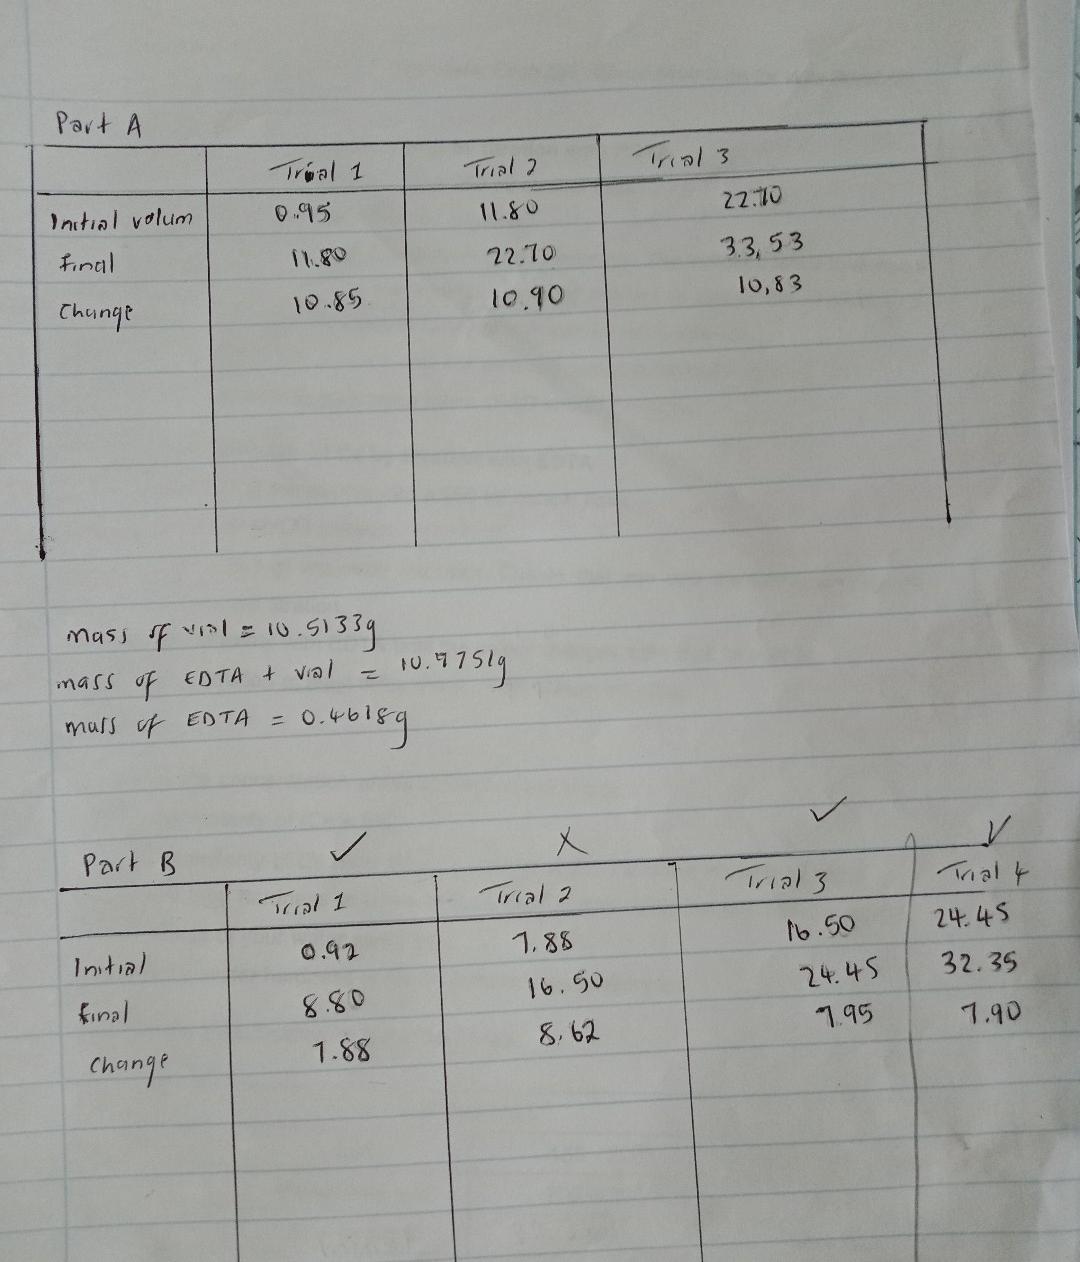 Part A
Trial 1 Trial 2 Trial 3
Initial volum 0.95 11.80 22.70
final 11.80 22.70 33,53
Change 10.85 10.90 10,83
mass of vial = 10.5133g
mass of EDTA + vial = 10.9751g
mass of EDTA = 0.4618g
✓ X ✓ ✓
Part B
Trial 1 Trial 2 Trial 3 Trial 4
Initial 0.92 7.88 16.50 24.45
final 8.80 16.50 24.45 32.35
Change 7.88 8.62 7.95 7.90